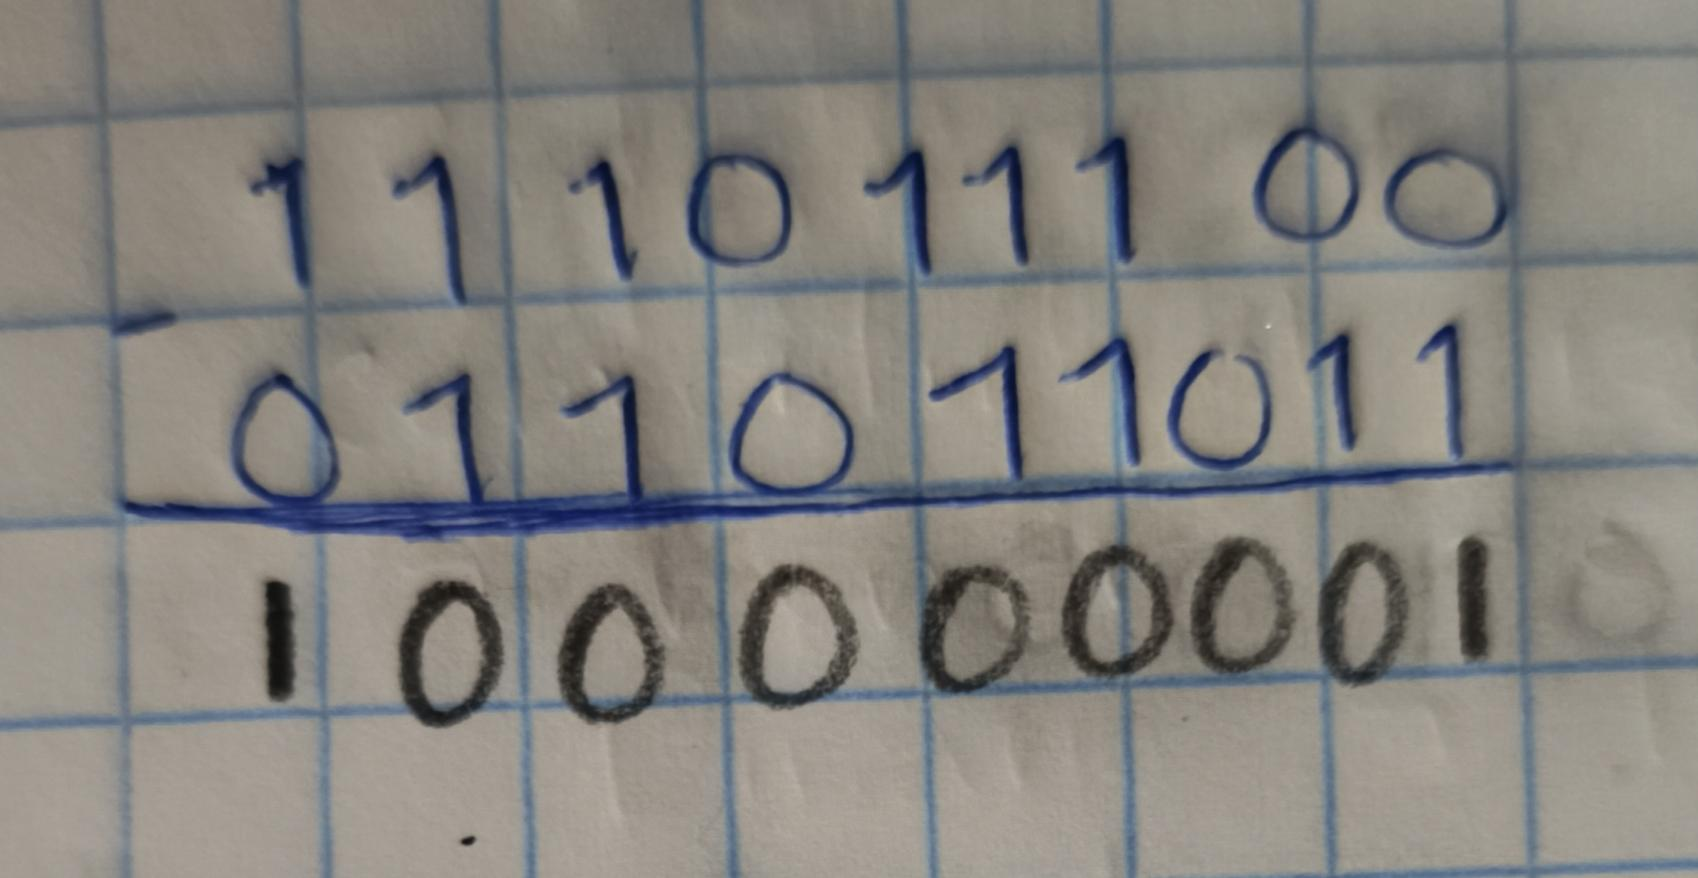 111011100
-
011011011
100000001